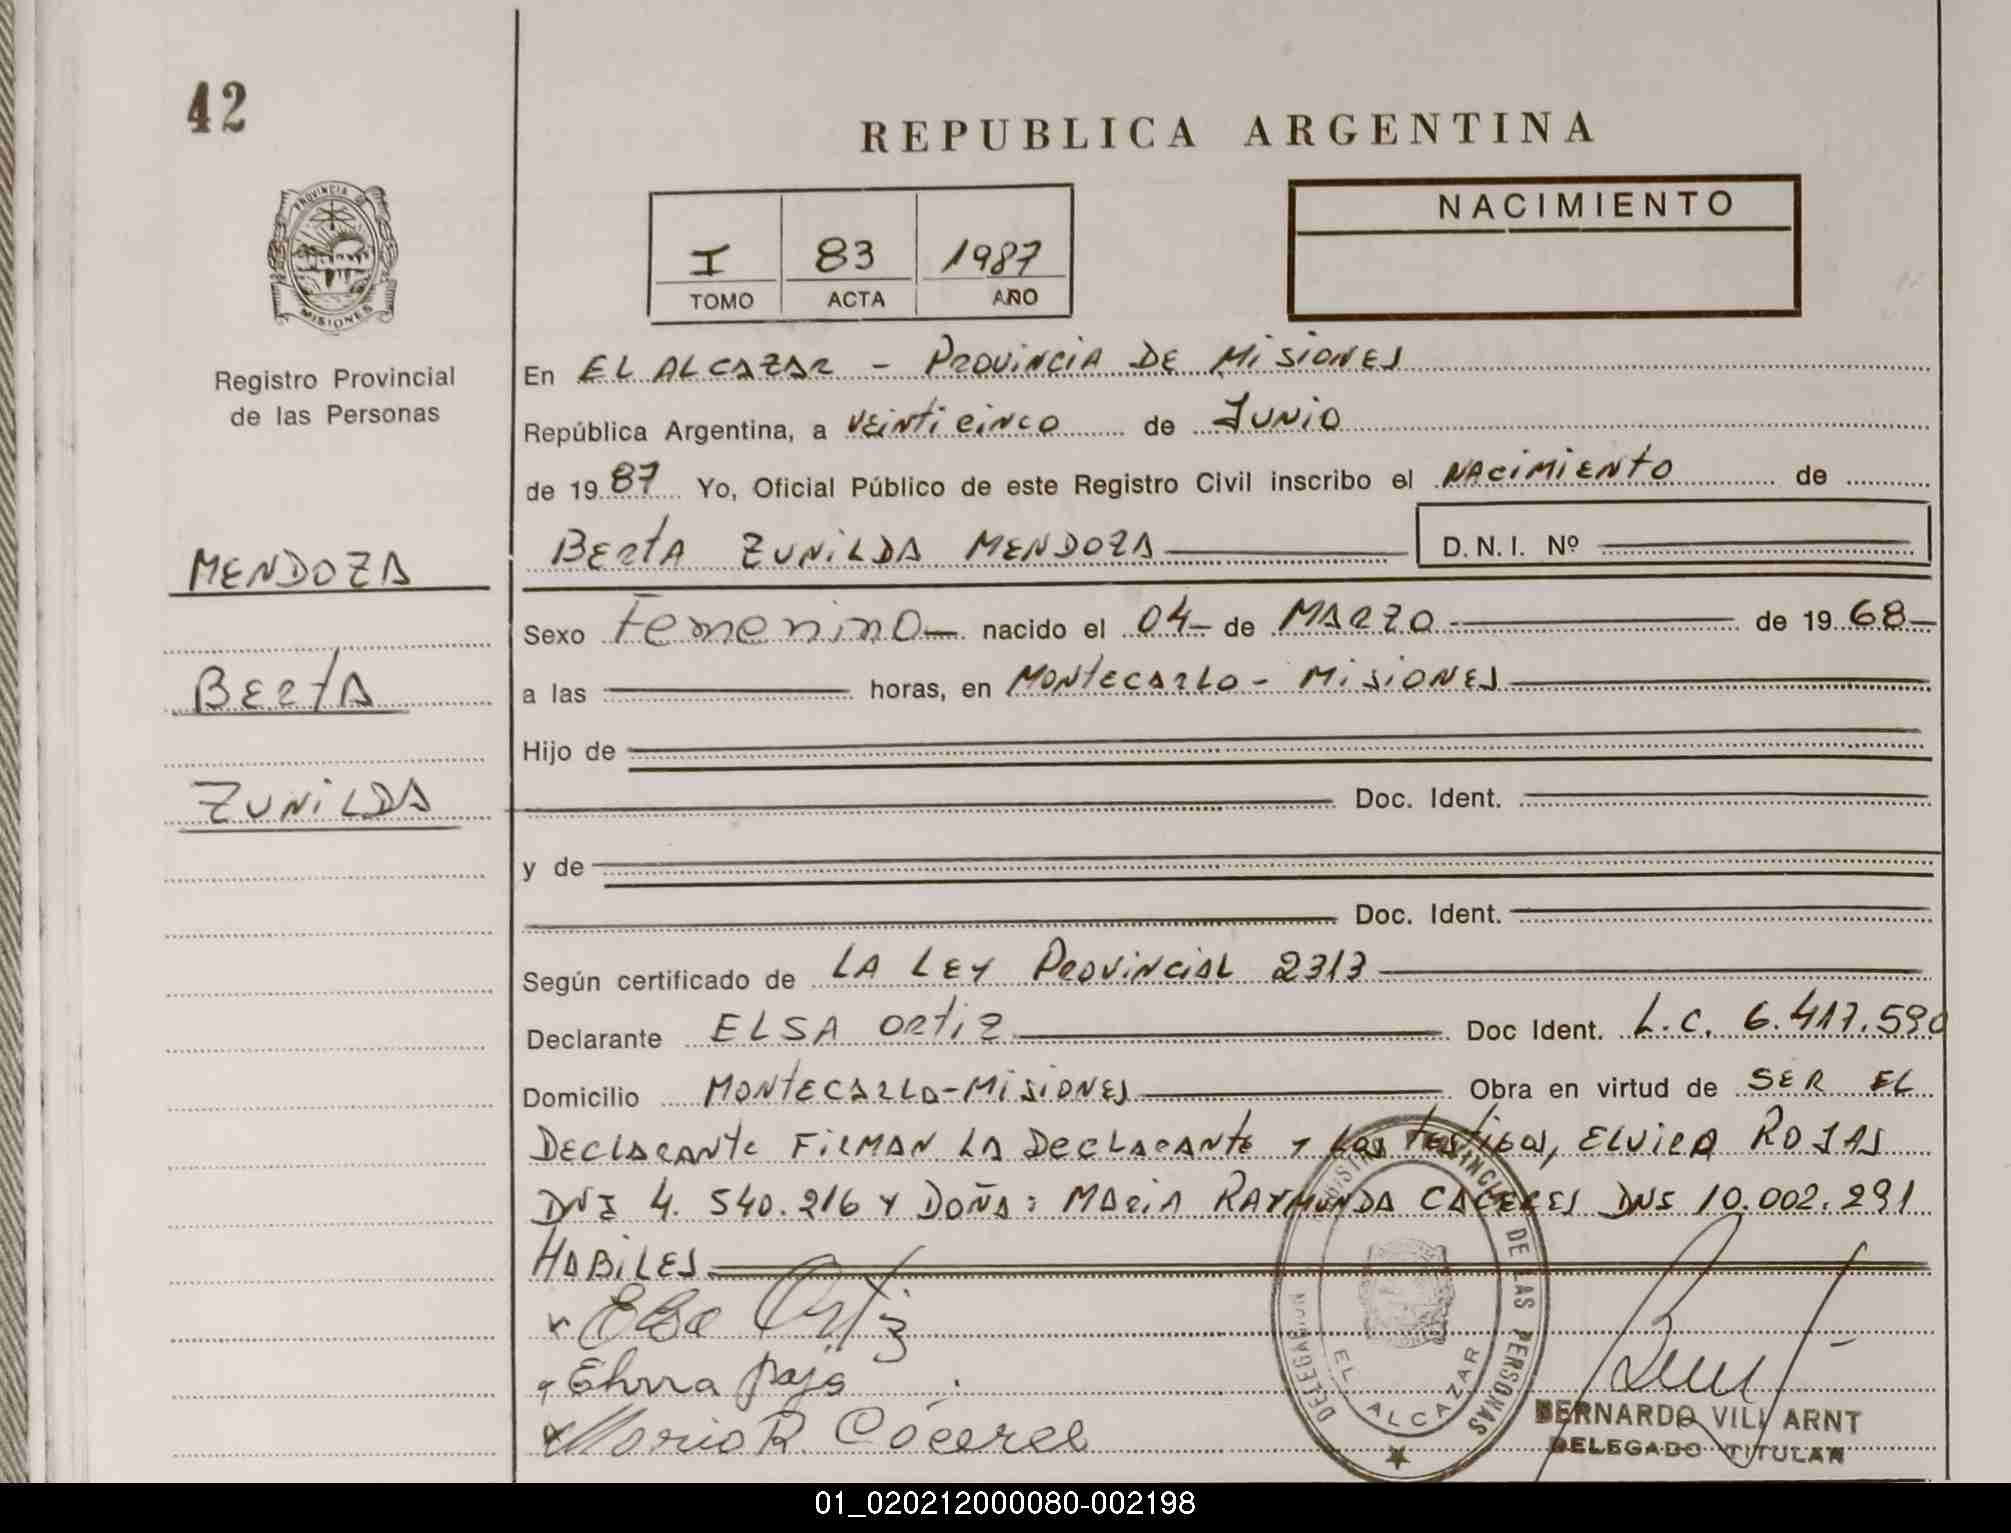 42
REPUBLICA ARGENTINA
PROVINCIA DE
MISIONES
I 83 1987
TOMO ACTA AÑO
NACIMIENTO
Registro Provincial
de las Personas
En EL ALCAZAR - PROVINCIA DE MISIONES
República Argentina, a VEINTICINCO de JUNIO
de 19 87 Yo, Oficial Público de este Registro Civil inscribo el NACIMIENTO de
BERTA ZUNILDA MENDOZA D.N.I. Nº
MENDOZA
BERTA
ZUNILDA
Sexo Femenino nacido el 04 de MARZO de 19 68
a las horas, en MONTECARLO - MISIONES
Hijo de
Doc. Ident.
y de
Doc. Ident.
Según certificado de LA LEY PROVINCIAL 2313
Declarante ELSA ORTIZ Doc Ident. L.C. 6.417.590
Domicilio MONTECARLO-MISIONES Obra en virtud de SER EL
DECLARANTE FIRMAN LA DECLARANTE Y Los TESTIGOS, ELVIRA ROJAS
DNI 4.540.216 Y DOÑA: MARIA RAYMUNDA CACERES DNI 10.002.291
HABILES
Elsa Ortiz
Elvira Rojas
Maria R. Cáceres
DE LAS PERSONAS
EL ALCAZAR
BERNARDO VILL ARNT
DELEGADO TITULAR
01_020212000080-002198